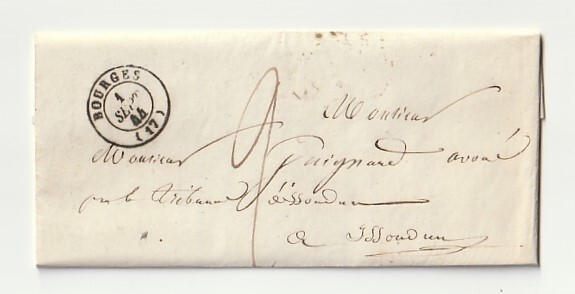 BOURGES
1
SEPT
44
(17)
Monsieur
Monsieur Guignard avoué
près le tribunal d'issoudun
a issoudun